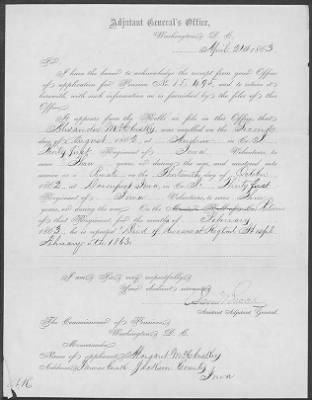 Adjutant General's Office,
Washington, D. C.
April 21st 1863
Sir:
I have the honor to acknowledge the receipt from your Office
of application for Pension No. 15,495, and to return it
herewith, with such information as is furnished by the files of this
Office.
It appears from the Rolls on file in this Office, that
Alexander was enrolled on the
day of August 1862, at in Co. I
Thirty first Regiment of Iowa Volunteers, to
serve years, or during the war, and mustered into
service as a Private on the Thirteenth day of October
1862, at Davenport Iowa, in Co. I Thirty first
Regiment of Iowa Volunteers, to serve
years, or during the war. On the
of that Regiment, for the month of February
1863, he is reported "Died of disease at Regtnl Hospital
February 5th 1863.
I am, Sir, very respectfully,
Your obedient servant,
Assistant Adjutant General.
The Commissioner of Pensions,
Washington, D. C.
Memoranda:
Name of applicant, Margaret
Address, Jackson County
Iowa